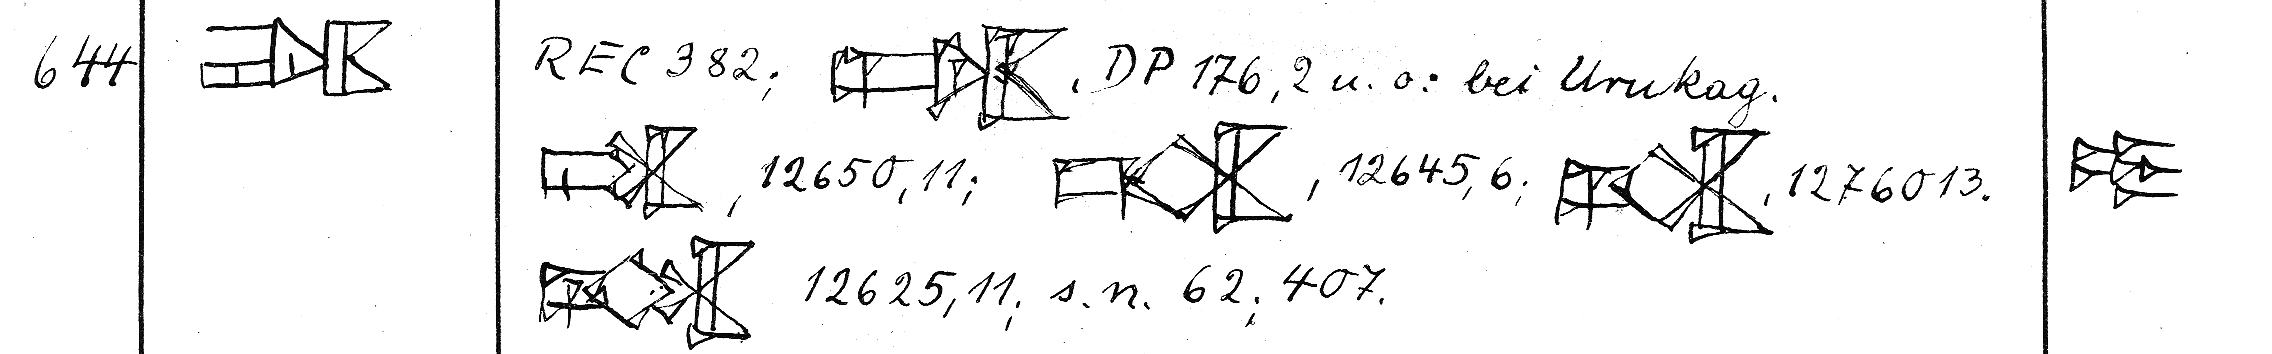 644 REC 382; , DP 176,2 u. o: bei Urukag.
, 12650,11; , 12645,6; , 1276013.
12625,11; s.n. 62; 407.